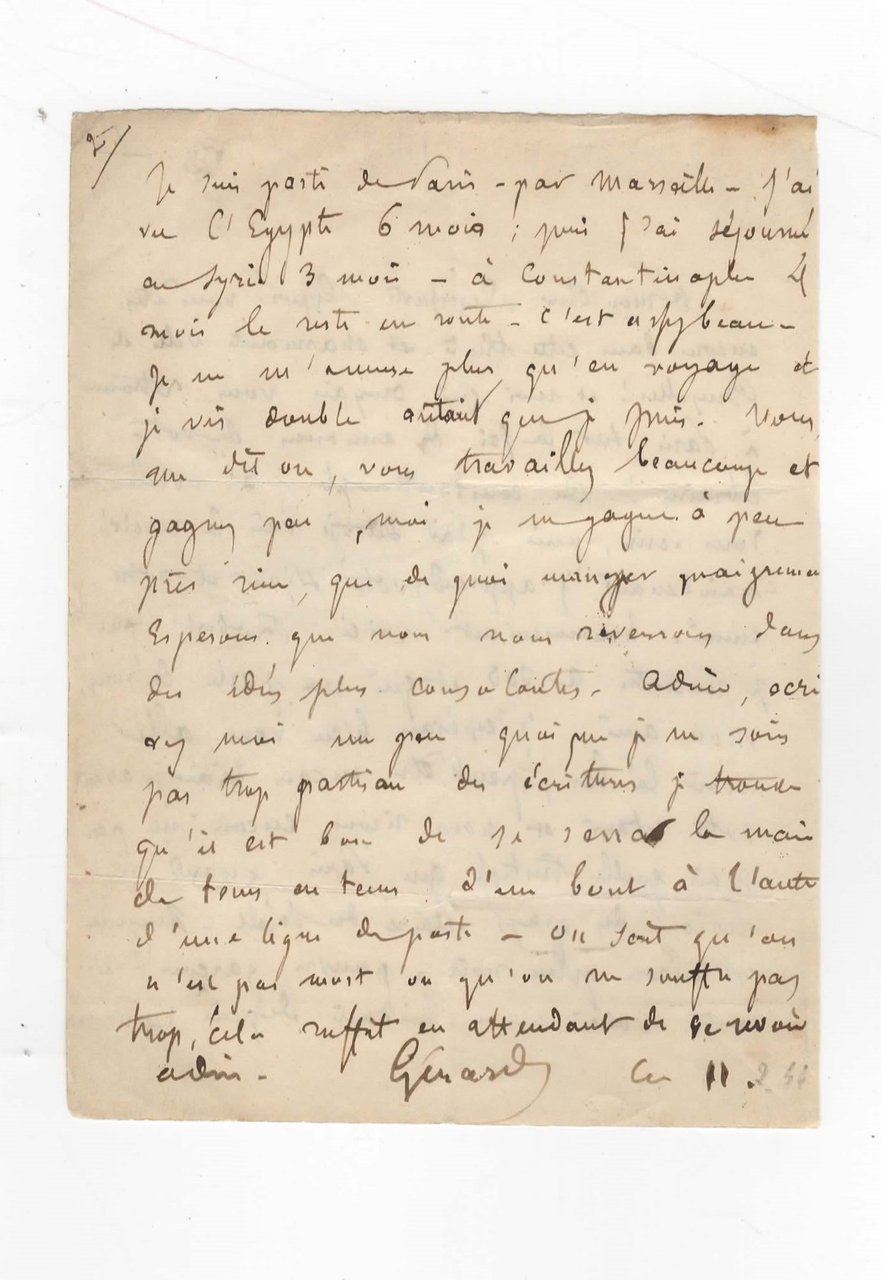 2/
Je suis parti de Paris - par Marseille - J'ai
vu l'Egypte 6 mois ; puis j'ai séjourné
en Syrie 3 mois - à Constantinople 4
mois le reste en route - C'est assez beau -
Je ne m'amuse plus qu'en voyage et
je vis double autant que je puis. Vous,
me dit on, vous travaillez beaucoup et
gagnez peu, moi je ne gagne à peu
près rien, que de quoi manger
Esperons que nous nous reverrons dans
des idées plus consolantes. Adieu, ecri
vez moi un peu quoique je ne sois
pas trop partisan des écritures je trouve
qu'il est bon de se serrer la main
de tems en tems d'un bout à l'autre
d'une ligne de poste - On sait qu'on
n'est pas mort ou qu'on ne souffre pas
trop, cela suffit en attendant de se revoir
adieu - Gérard Ce 11.